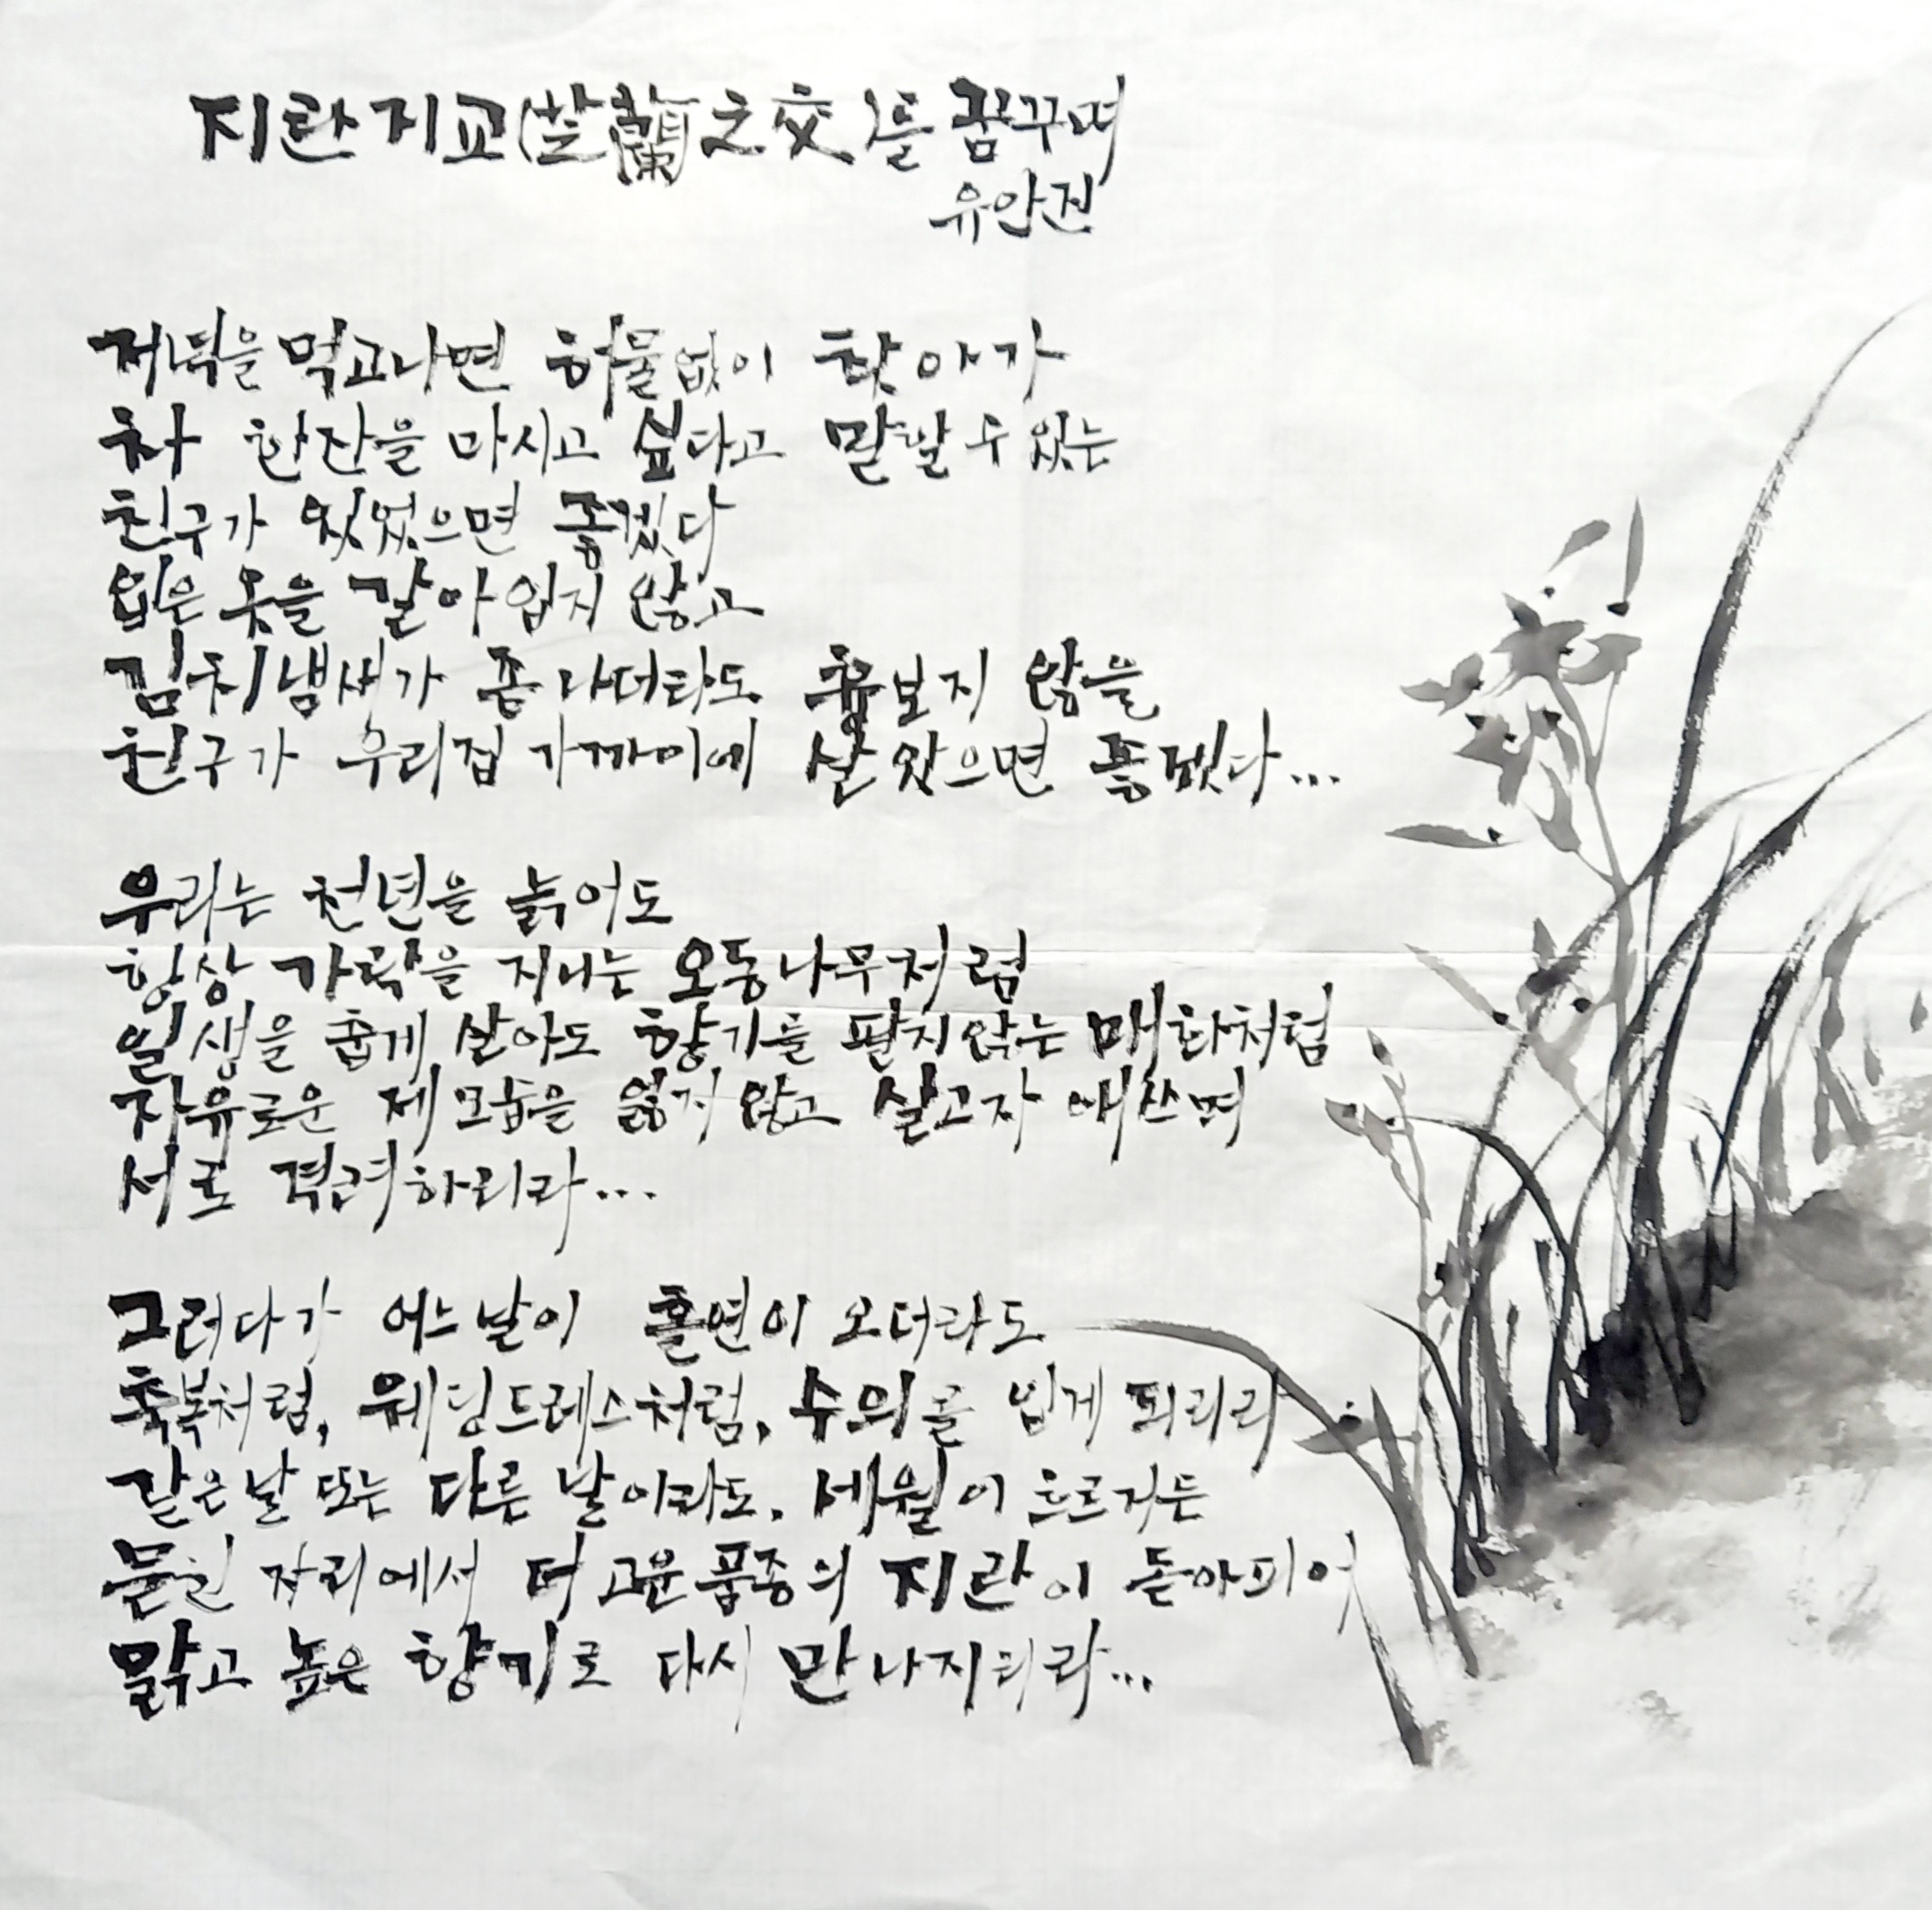 지란지교(芝蘭之交)를 꿈꾸며
유안진
저녁을 먹고나면 허물없이 찾아가
차 한잔을 마시고 싶다고 말할 수 있는
친구가 있었으면 좋겠다
입은 옷을 갈아입지 않고
김치냄새가 좀 나더라도 흉보지 않을
친구가 우리집 가까이에 살았으면 좋겠다...
우리는 천년을 늙어도
항상 가락을 지니는 오동나무처럼
일생을 춥게 살아도 향기를 팔지않는 매화처럼
자유로운 제모습을 잃지 않고 살고자 애쓰며
서로 격려하리라...
그러다가 어느날이 홀연이 오더라도
축복처럼, 웨딩드레스처럼, 수의를 입게 되리리
같은날 또는 다른 날이라도. 세월이 흐르거든
묻힌 자리에서 더 고운품종의 지란이 돋아피어
맑고 높은 향기로 다시 만나지리라...